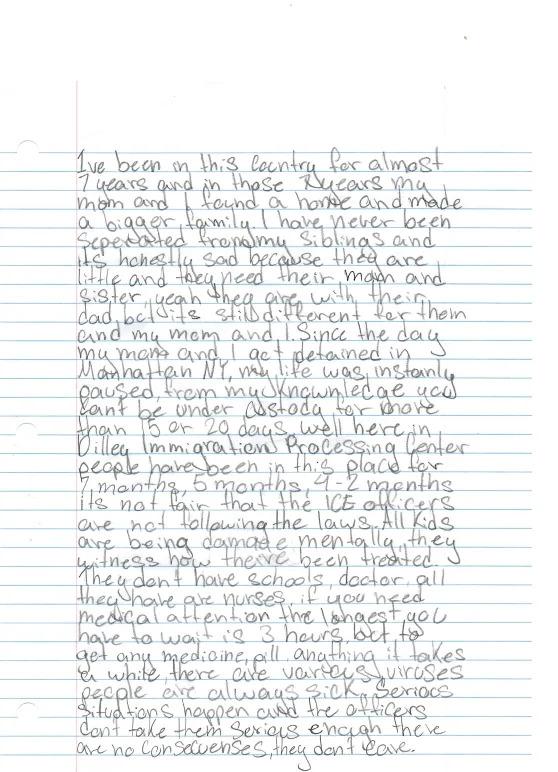 Ive been in this Country for almost
7 years and in those years my
mom and I found a home and made
a bigger family. I have never been
seperated from my siblings and
its honestly sad because they are
little and they need their mom and
sister, yeah they are with their
dad, but its still different for them
and my mom and I. Since the day
my mom and I got detained in
Manhattan NY, my life was instantly
paused, from my knownledge you
cant be under custody for more
than 15 or 20 days, well here in
Dilley Immigration Processing Center
people have been in this place for
7 months, 5 months, 4-2 months
its not fair that the ICE officers
are not following the laws. All Kids
are being damage mentally, they
witness how been treated.
They don't have schools, doctor, all
they have are nurses, if you need
medical attention the longest you
have to wait is 3 hours, but to
get any medicine, pill, anything it takes
a while, there are various viruses
people are always sick, serious
situations happen and the officers
dont take them serius enough there
are no consecuenses, they don't care.